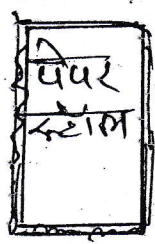 पेपर
स्टॉल